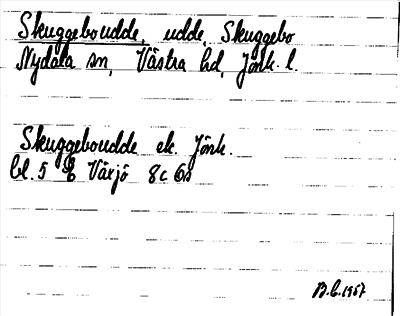 Skuggeboudde, udde, Skuggebo
Nydala sn, Västra hd, Jönk. l.
Skuggeboudde ek. Jönk.
bl. 5 Växjö 8c
B.C. 1957